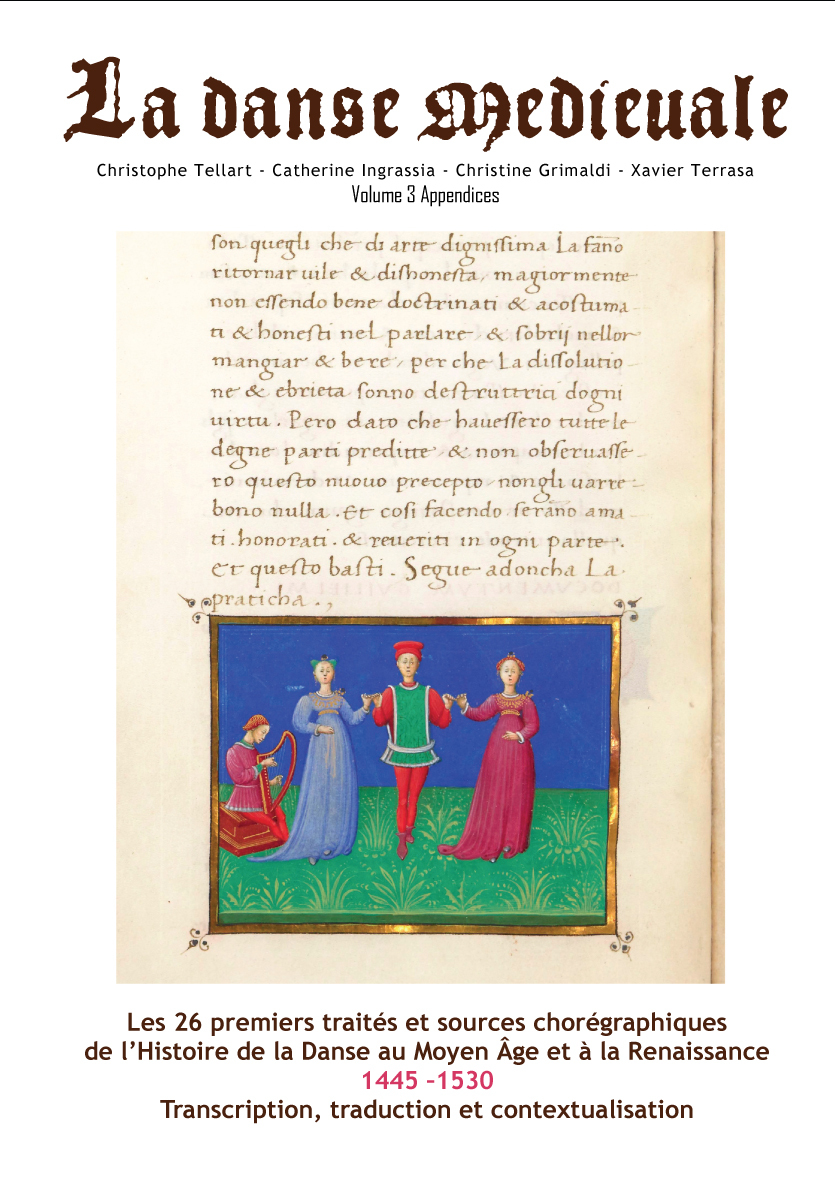 La danse Medieuale
Christophe Tellart - Catherine Ingrassia - Christine Grimaldi - Xavier Terrasa
Volume 3 Appendices
son quegli che di arte dignissima La fāno
ritornar uile & dishonesta, magiormente
non essendo bene doctrinati & acostuma
ti & honesti nel parlare, & sobrij nellor
mangiar & bere, per che La dissolutio
ne & ebrieta sonno destruttrici dogni
uirtu. Pero dato che hauessero tutte le
degne parti preditte, & non obseruasse
ro questo nuouo precepto, non gli uarre
bono nulla. Et cosi facendo serāno ama
ti. honorati. & reueriti in ogni parte.
Et questo basti. Segue adoncha La
praticha.,
Les 26 premiers traités et sources chorégraphiques
de l’Histoire de la Danse au Moyen Âge et à la Renaissance
1445 –1530
Transcription, traduction et contextualisation